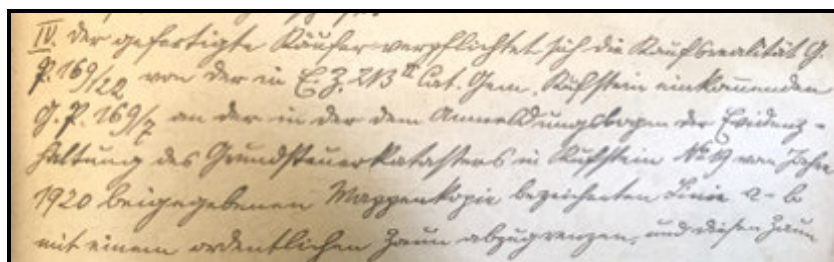 IV. Der gefertigte Käufer verpflichtet sich die Kaufsrealität G.
P. 169/22 von der in E.Z. 213 II Cat. Gem. Kufstein einkommenden
G.P. 169/7 an der in der dem Anmeldungsbogen der Evidenz-
haltung des Grundsteuerkatasters in Kufstein No 19 vom Jahre
1920 beigegebenen Mappenkopie bezeichneten Linie a-b
mit einem ordentlichen Zaun abzugrenzen, und diesen Zaun